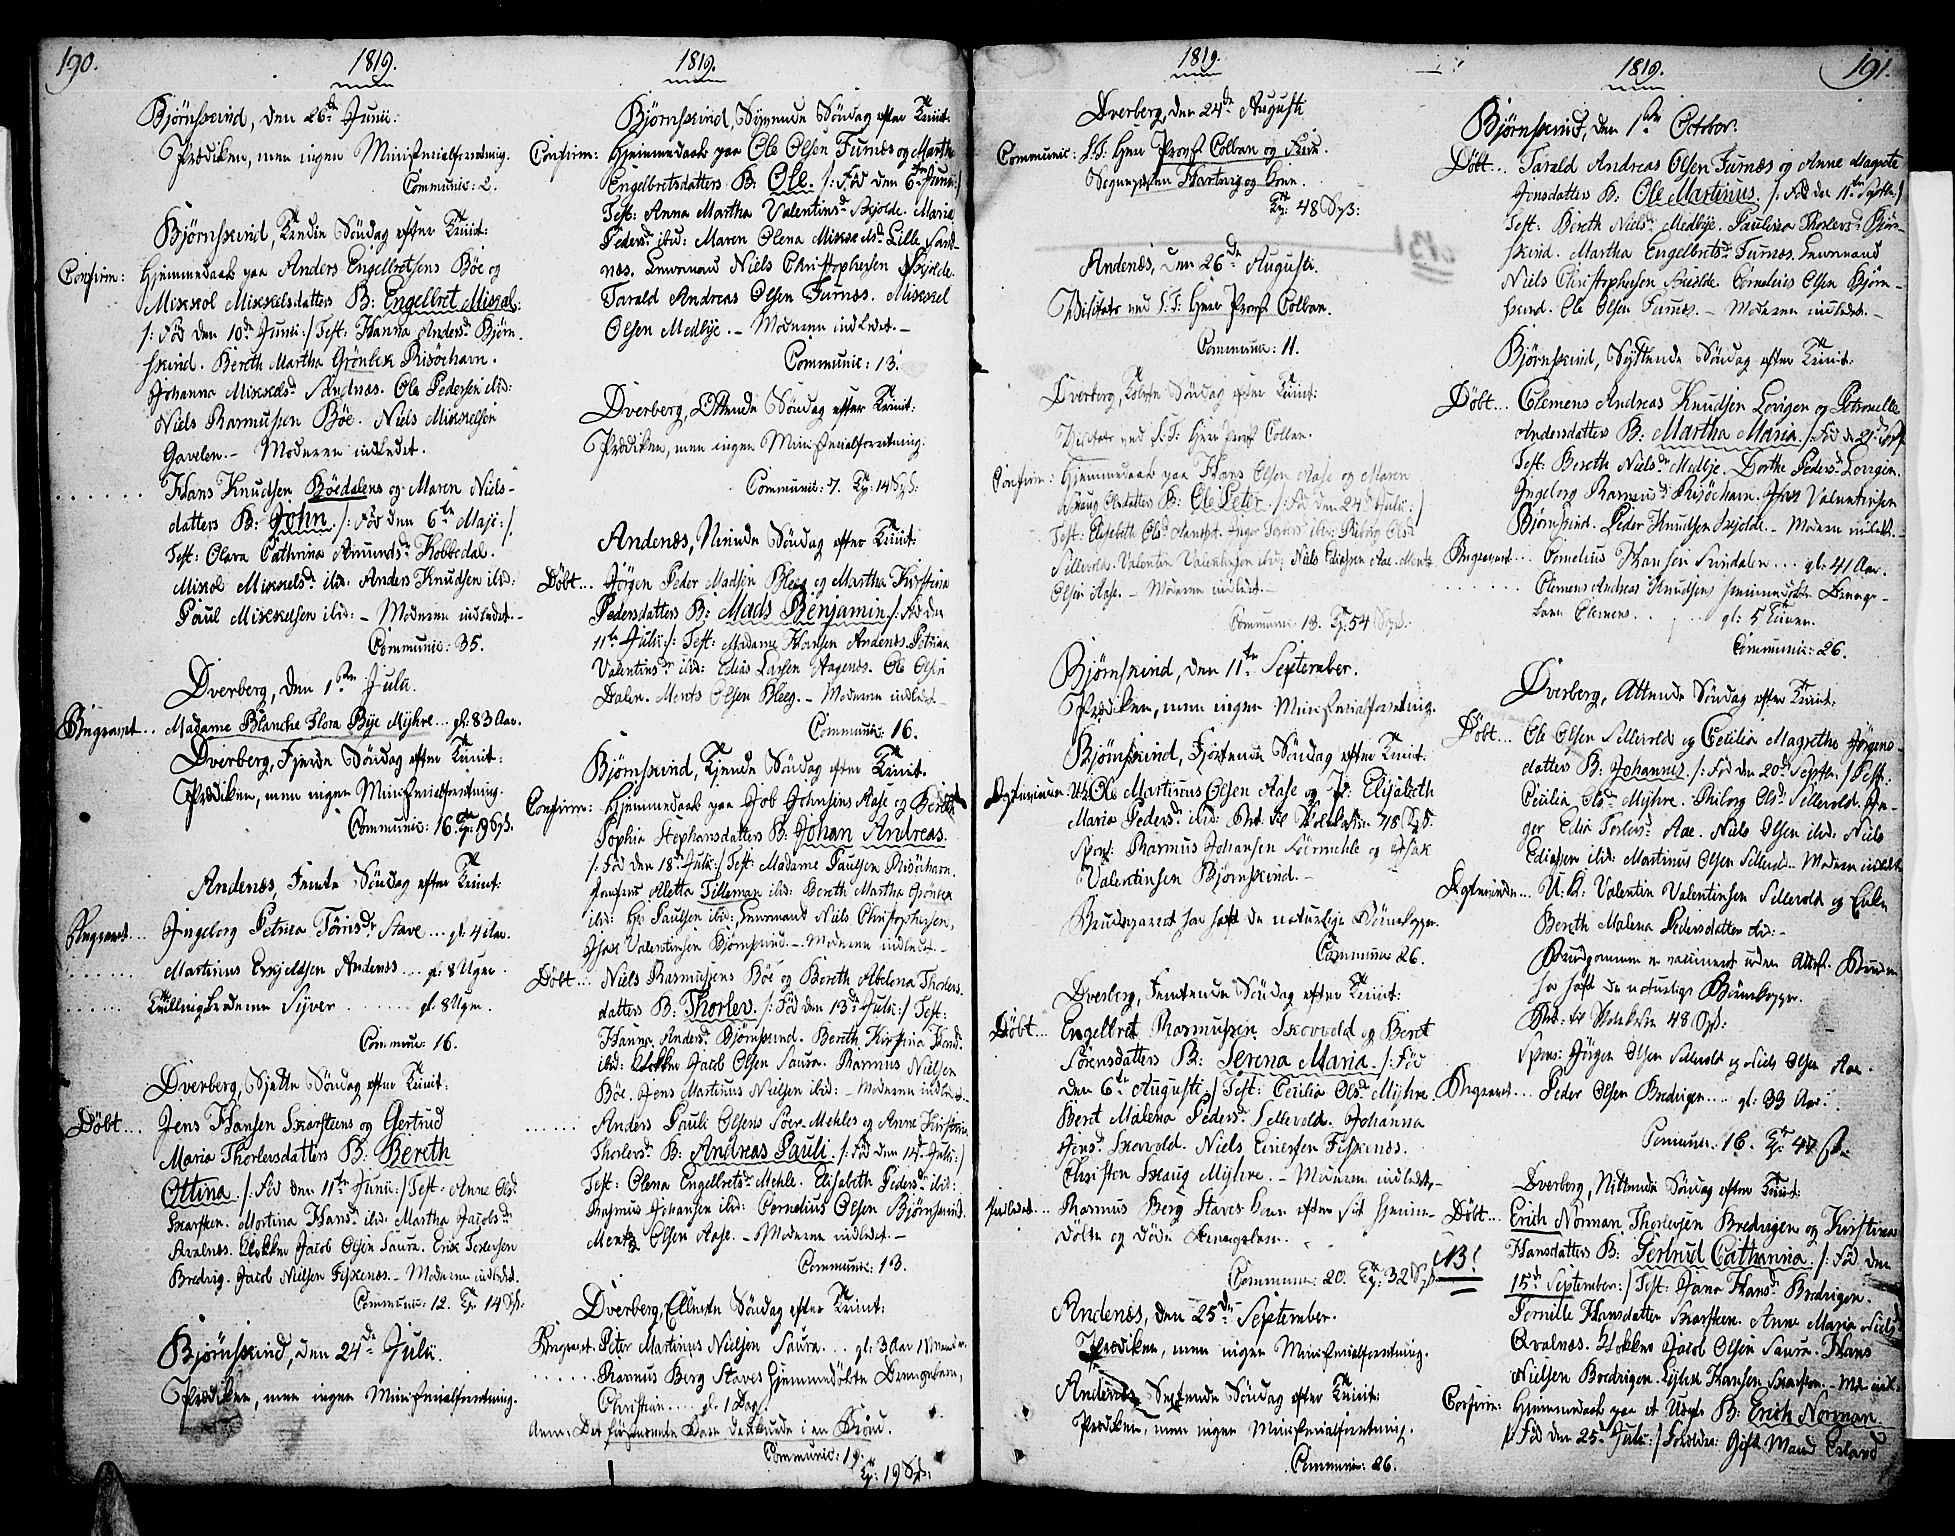 190.
1819.
Bjørnskind, den 26de Junii:
Prædiken, men ingen Ministerialforretning.
Communic: 2.
Bjørnskind, Tredie Søndag efter Trinit:
Confirm: Hjemmedaab paa Anders Engelbretsens Bøe og
Mikkol Mikkelsdatters B: Engelbret Mikal:
/: Fød den 10de Junii :/ Test: Hanna Andersd. Bjørn-
skind. Bereth Martha Grönbek Risøehavn.
Johanna Mikkelsd. Aandnæs. Ole Pedersen ibid:
Niels Rasmussen Bøe. Niels Mikkelsen
Gavlen. - Moderen indledet.
Hans Knudsen Böedalens og Maren Niels-
datters B: John /: Fød den 6te Maji :/
Test: Olava Cathrina Amundsd. Kobbedal.
Mikol Mikkelsd. ibid: Anders Knudsen ibid:
Paul Mikkelsen ibid: - Moderen indledet. -
Communic: 35.
Dverberg, den 1ste Julii.
Begravet... Madame Blanche Flora Bye Myhre... gl: 83 Aar.
Dverberg, Fjerde Søndag efter Trinit:
Prædiken, men ingen Ministerialforretning.
Communic: 16.
Andenæs, Femte Søndag efter Trinit:
Begravet... Ingeborg Petrea Tönisdr Stave... gl. 4 Aar.
Martinus Andenæs... gl: 8 Uger.
Tvillingbroderen Syver ...... gl. 8 Uger.
Communic: 16.
Dverberg, Sjette Søndag efter Trinit:
Døbt... Jens Hansen Skarsteens og Gertrud
Maria Thorlersdatters B: Bereth
Ottina /: Fød den 11te Junii :/ Test: Anne Olsd.
Skarsteen. Martina Hansd. ibid: Martha Jacobsd.
Avalnes. Klokker Jacob Olsen Saura. Erik Torlersen
Bredvig. Jacob Nielsen Fiskenæs. - Moderen indledet.
Communic: 12. Tv: 14 ß:
Bjørnskind, den 24de Julii.
Prædiken, men ingen Ministerialforretning.
1819.
Bjørnskind, Syvende Søndag efter Trinit:
Confirm: Hjemmedaab paa Ole Olsen Furnæs og Martha
Engelbretsdatters B: Ole. /: Fød den 6te Junii :/
Test: Anna Martha Valentinsd. Skjolde. Maria
Pedersd. ibid: Maren Olena Mikkelsd. Lille Sand-
næs. Lensmand Niels Christophersen Skjolde.
Tarald Andreas Olsen Furnæs. Mikkel
Olsen Medbye. - Moderen indledet. -
Communic: 13.
Dverberg, Ottende Søndag efter Trinit:
Prædiken, men ingen Ministerialforretning:
Communic: 7. Tv: 14 ß:
Andenæs, Niende Søndag efter Trinit:
Døbt... Jögen Peder Madsen Bleeg og Martha Kirstina
Pedersdatters B: Mads Benjamin /: Fød den
11te Julii :/ Test: Madame Hansen Andenæs. Petrina
Valentinsdr ibid: Elias Larsen Haugnæs. Ole Olsen
Dalen. Ments Olsen Bleeg. - Moderen indledet -
Communic: 16.
Bjørnskind, Tiende Søndag efter Trinit.
Confirm: Hjemmedaab paa Job Johnsens Aase og Bereth
Sophia Stephansdatters B: Johan Andreas.
/: Fød den 18de Julii :/ Test: Madame Paulsen Risöehavn.
Jomfrue Aletta Tilleman ibid: Bereth Martha Grönbek
ibid: Hr. Paulsen ibid: Lensmand Niels Christophersen,
Isak Valentinsen Bjørnskind. - Moderen indledet. -
Døbt... Niels Rasmussens Bøe og Bereth Abelona Thorlers-
datters B: Thorler. /: Fød den 13de Julii :/ Test:
Hanna Andersd. Bjørnskind. Bereth Kirstina Hansd.
ibid: Klokker Jacob Olsen Saura. Rasmus Nielsen
Bøe. Jens Martinus Nielsen ibid: - Moderen indledet -
Anders Pauli Olsens Soer-Mehles og Anne Kirstina
Thorlersd. B: Andreas Pauli. /: Fød den 14de Julii :/
Test: Olena Engelbretsd. Mehle. Elisabeth Pedersd. ibid:
Rasmus Johansen ibid: Cornelius Olsen Bjørnskind.
Mentz Olsen Aase. - Moderen indledet. -
Communic: 13.
Dverberg, Ellevte Søndag efter Trinit:
Begravet. Peter Martinus Nielsen Saura... gl: 3 Aar 1 Maaned.
Rasmus Berg Staves hjemmedøbte Drengebarn,
Christian.... gl. 1 Dag.
Anm: Det förstnævnte Barn druknede i en Brønd.
Communic: 19.
Tv: 19 ß:
1819.
Dverberg, den 24de Augusti
Communic: S.T. Herr Provst Colban og Frue.
Sognepræsten Hartvig og Kone.
Tv: 48 ß:
Andenæs, den 26de Augusti.
Visitats ved S.T. Herr Provst Colban.
Communic: 11.
Dverberg, Tolvte Søndag efter Trinit:
Visitats ved S.T. Herr Provst Colban.
Confirm: Hjemmedaab paa Hans Olsen Aase og Maren
Olsdatters B: Ole Peter. /: Fød den 24de Julii :/
Sellevold. Valentin Valentinsen ibid: Niels Ediassen Aae. Mentz
Olsen Aase. - Moderen indledet. -
Communic: 13. Tv: 54 ß.
Bjørnskind, den 11te September.
Prædiken, men ingen Ministerialforretning.
Bjørnskind, Fjortende Søndag efter Trinit:
Ægtevieede: U.K. Ole Martinus Olsen Aase og P: Elisabeth
Maria Pedersd. ibid: 48 ß.
Spons: Rasmus Johansen Söermehle og Isak
Valentinsen Bjørnskind. -
Brudeparret har haft de naturlige Börnekopper.
Communic: 26.
Dverberg, Femtende Søndag efter Trinit:
Døbt... Engelbret Rasmussen Skovvold og Beret
Sörensdatters B: Serena Maria. /: Fød
den 6te Augusti :/ Test: Cecilia Olsd. Myhre
Beret Malena Pedersd. Sellevold. Johanna
Jensd. Skovvold. Niels Einersen Fiskenæs.
Christen Skaug Myhre. - Moderen indledet. -
Indledet... Rasmus Berg Staves Kone efter sit hjemme-
døbte og døde Drengebarn.
Communic: 20. Tv: 32 ß:
Andenæs, den 25de September.
Prædiken, men ingen Ministerialforretning.
Andenæs, Sextende Søndag efter Trinit:
Prædiken, men ingen Ministerialforretning.
Communic: 26.
1819.
191.
Bjørnskind, den 1ste October.
Døbt... Tarald Andreas Olsen Furnæs og Anne Magrete
Jonsdatters B: Ole Martinus. /: Fød den 11te Septbr :/
Test: Bereth Nielsd. Medbye. Paulina Thorlersd. Bjørn-
skind. Martha Engelbretsd. Furnæs. Lensmand
Niels Christophersen Skjolde. Cornelius Olsen Bjørn-
skind. Ole Olsen Furnæs. - Moderen indledet. -
Bjørnskind, Syttende Søndag efter Trinit:
Døbt... Clemens Andreas Knudsen Lovigen og Petronelle
Andersdatters B: Martha Maria. /: Fød den 21de Sept.
Test: Bereth Nielsdr Medbye. Dorthe Pedersd. Lovigen.
Ingeborg Rasmusd. Risöehavn. Isak Valentinsen
Bjørnskind. Peder Knudsen Skjolde. - Moderen indledt. -
Begravet... Cornelius Hansen Svindalen... gl: 41 Aar.
Clemens Andreas Knudsens hjemmedøbte Drenge-
barn Clemens. .... gl: 5 Timer.
Communic: 26.
Dverberg, Attende Søndag efter Trinit:
Døbt... Ole Olsen Sellevold og Cecilia Magrethe Jörgens-
datters B: Johannes. /: Fød den 20de Septbr. :/ Test:
Cecilia Olsd. Myhre. Sibeborg Olsd. Sellevold. In-
ger Edia Torlersd. Aae. Niels Olsen ibid: Niels
Ediassen ibid: Martinus Olsen Sellevold. - Moderen indledt.
Ægtevieede... U.K: Valentin Valentinsen Sellevold og Enke
Bereth Malena Pedersdatter ibid: -
Brudgommen er vaccineret uden Attest. Bruden
har haft de naturlige Börnekopper.
48 ß:
Spons: Jörgen Olsen Sellevold og Niels Olsen Aae.
Begravet... Peder Olsen Bredvigen.... gl: 33 Aar.
Communic: 16. Tv: 47 ß.
Dverberg, Nittende Søndag efter Trinit:
NB!
Døbt... Erich Norman Thorlersen Bredvigen og Kirstina
Hansdatters B: Gertrud Cathanna. /: Fød den
15de September :/ Test: Jana Hansd. Bredvigen.
Pernille Hansdatter Skarsteen. Anne Maria Nielsd.
Avalnæs. Klokker Jacob Olsen Saura. Hans
Nielsen Bredvigen. Hansen Skarsteen. - Mod: indl:
Confirm: Hjemmedaab paa et Uægte B: Erich Norman
/: Fød den 25de Julii :/ Forældre: Gift Mand Erland